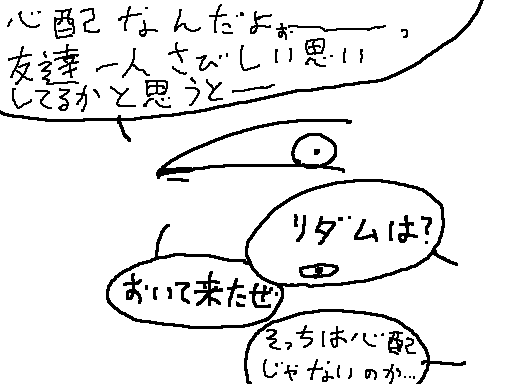 心配なんだよぉ――っ
友達一人さびしい思い
してるかと思うと―
リダムは?
おいて来たぜ
そっちは心配
じゃないのか…